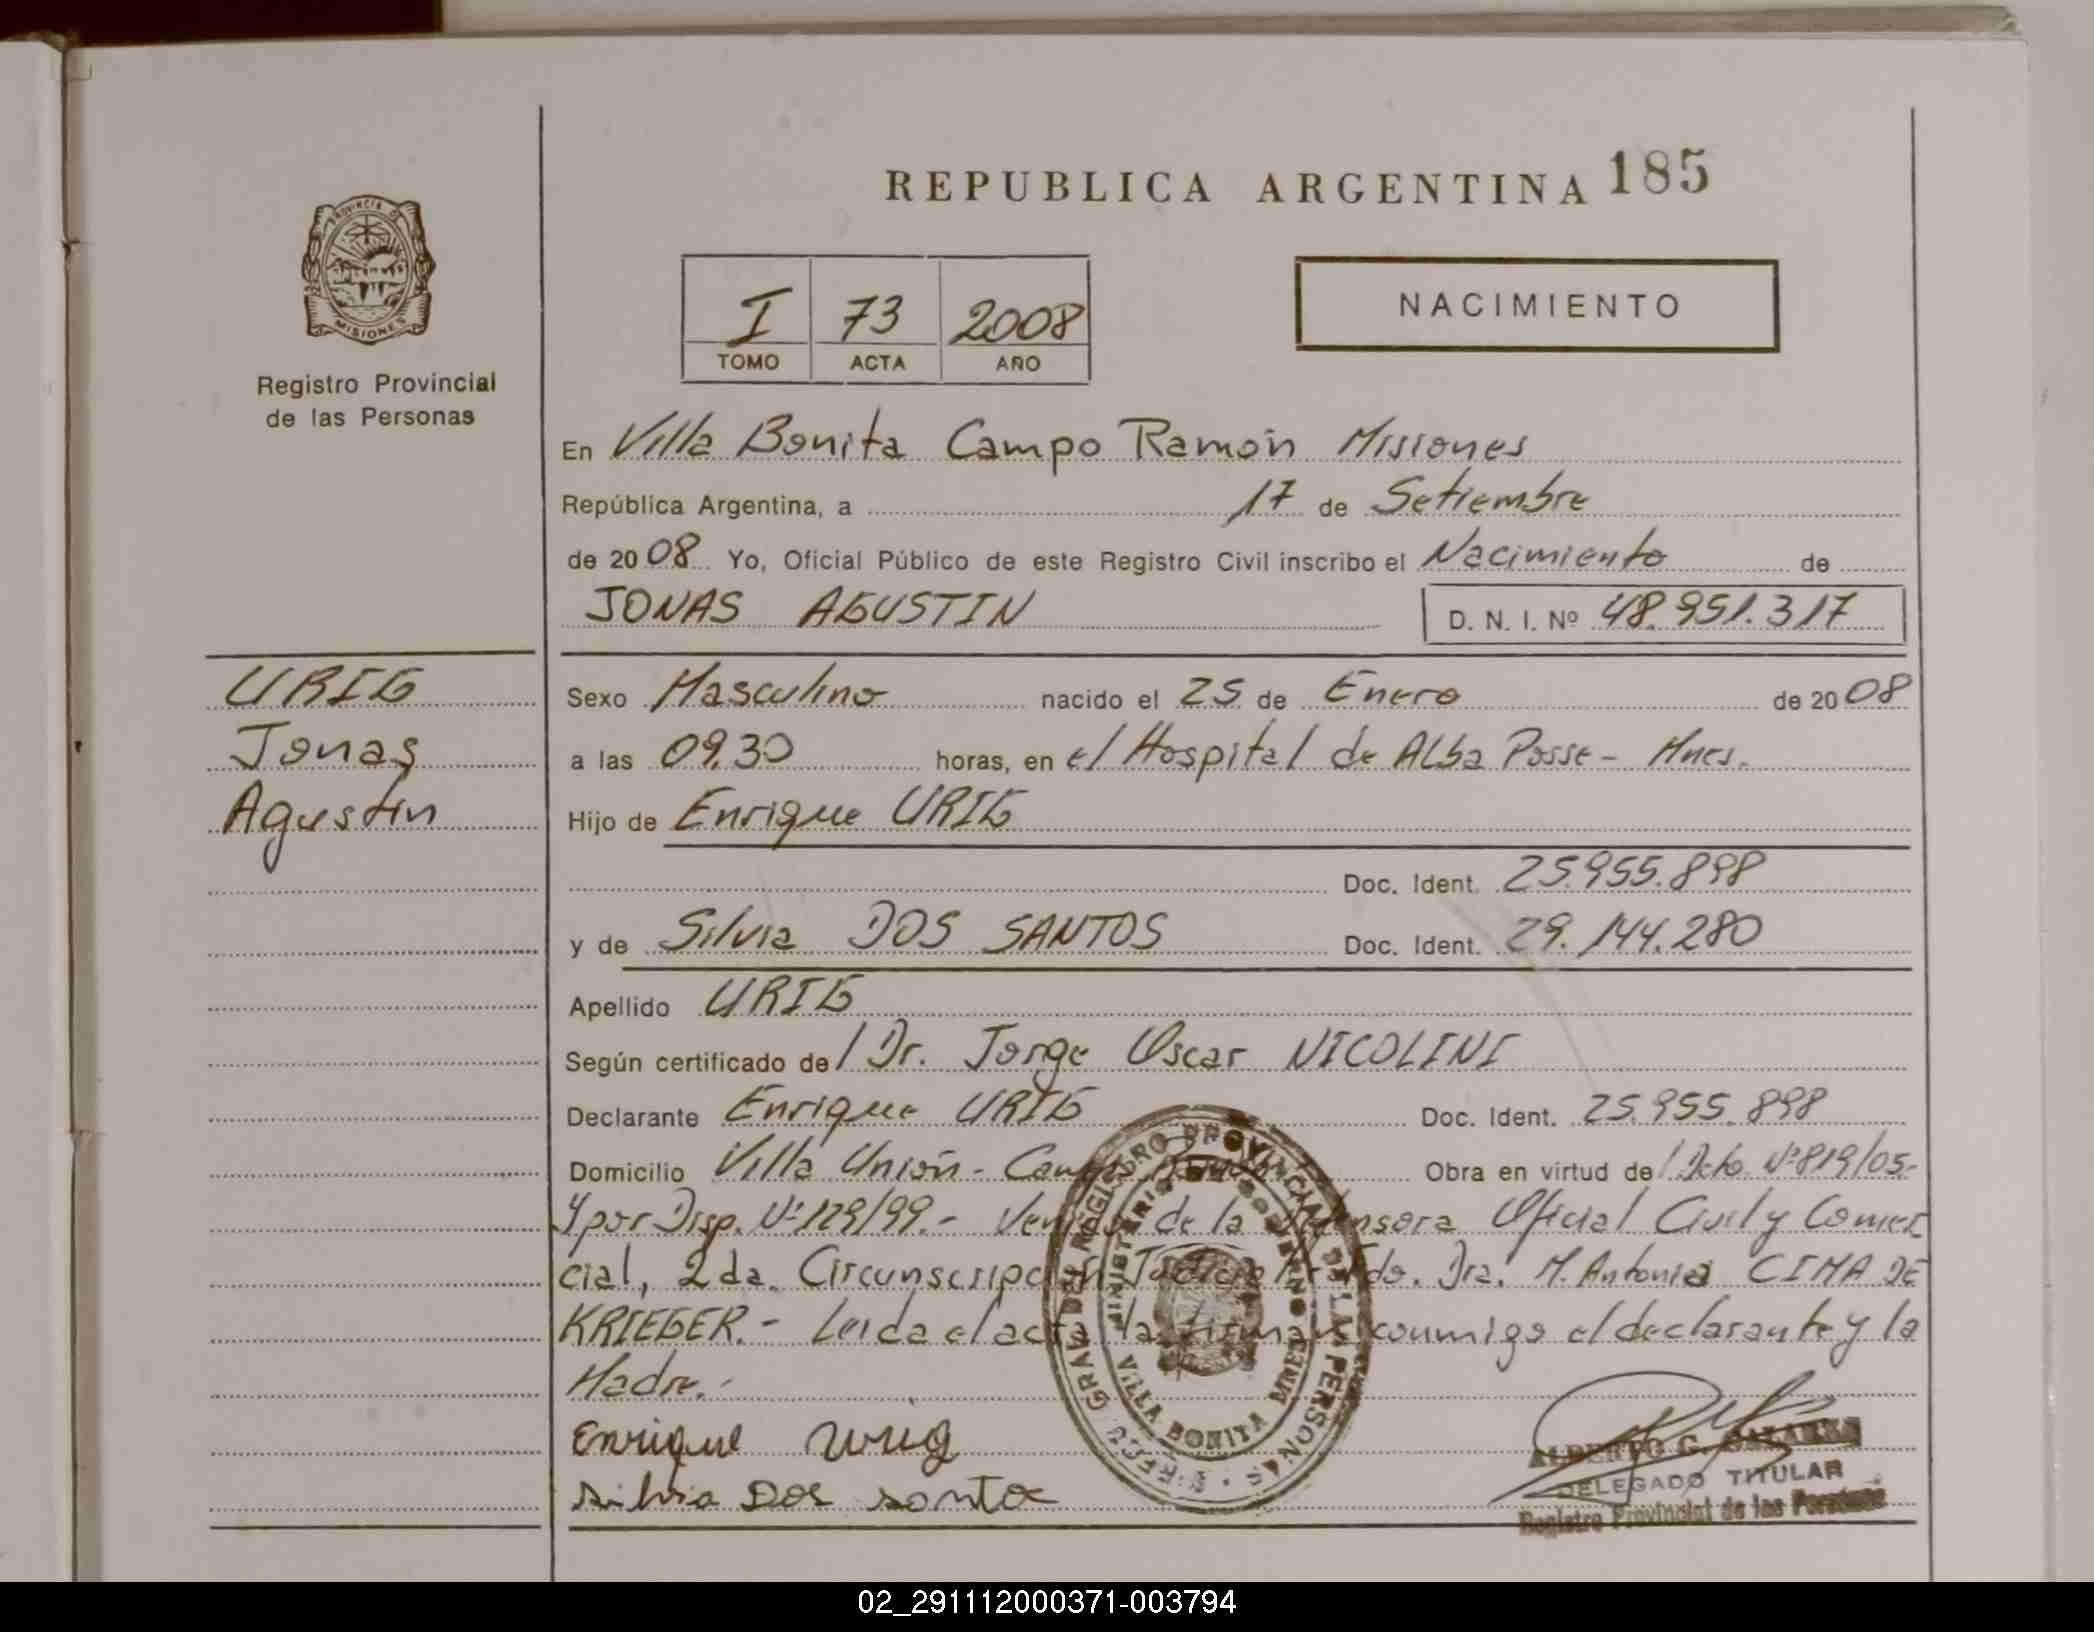 REPUBLICA ARGENTINA 185
PROVINCIA DE
MISIONES
Registro Provincial
de las Personas
I 73 2008
TOMO ACTA AÑO
NACIMIENTO
En Villa Bonita Campo Ramón Misiones
República Argentina, a 17 de Setiembre
de 2008 Yo, Oficial Público de este Registro Civil inscribo el Nacimiento de
JONAS AGUSTIN D. N. I. Nº 48.951.317
URIG
Jonas
Agustin
Sexo Masculino nacido el 25 de Enero de 2008
a las 09.30 horas, en el Hospital de Alba Posse - Mnes.
Hijo de Enrique URIG
Doc. Ident. 25.955.898
y de Silvia DOS SANTOS Doc. Ident. 29.144.280
Apellido URIG
Según certificado del Dr. Jorge Oscar NICOLINI
Declarante Enrique URIG Doc. Ident. 25.955.898
Domicilio Villa Unión - Campo Obra en virtud del Dcto. Nº 819/05.-
Y por Disp. Nº 129/99.- de la Defensora Oficial Civil y Comer
cial, 2da. Circunscripción Judicial Dra. M. Antonia CIMA DE
KRIEGER.- Leida el acta la firman conmigo el declarante y la
Madre.-
Enrique Urig
Silvia Dos Santos
REGISTRO PROVINCIAL DE LAS PERSONAS
MINISTERIO DE GOBIERNO
VILLA BONITA MNES
ALBERTO G.
DELEGADO TITULAR
Registro Provincial de las Personas
02_291112000371-003794